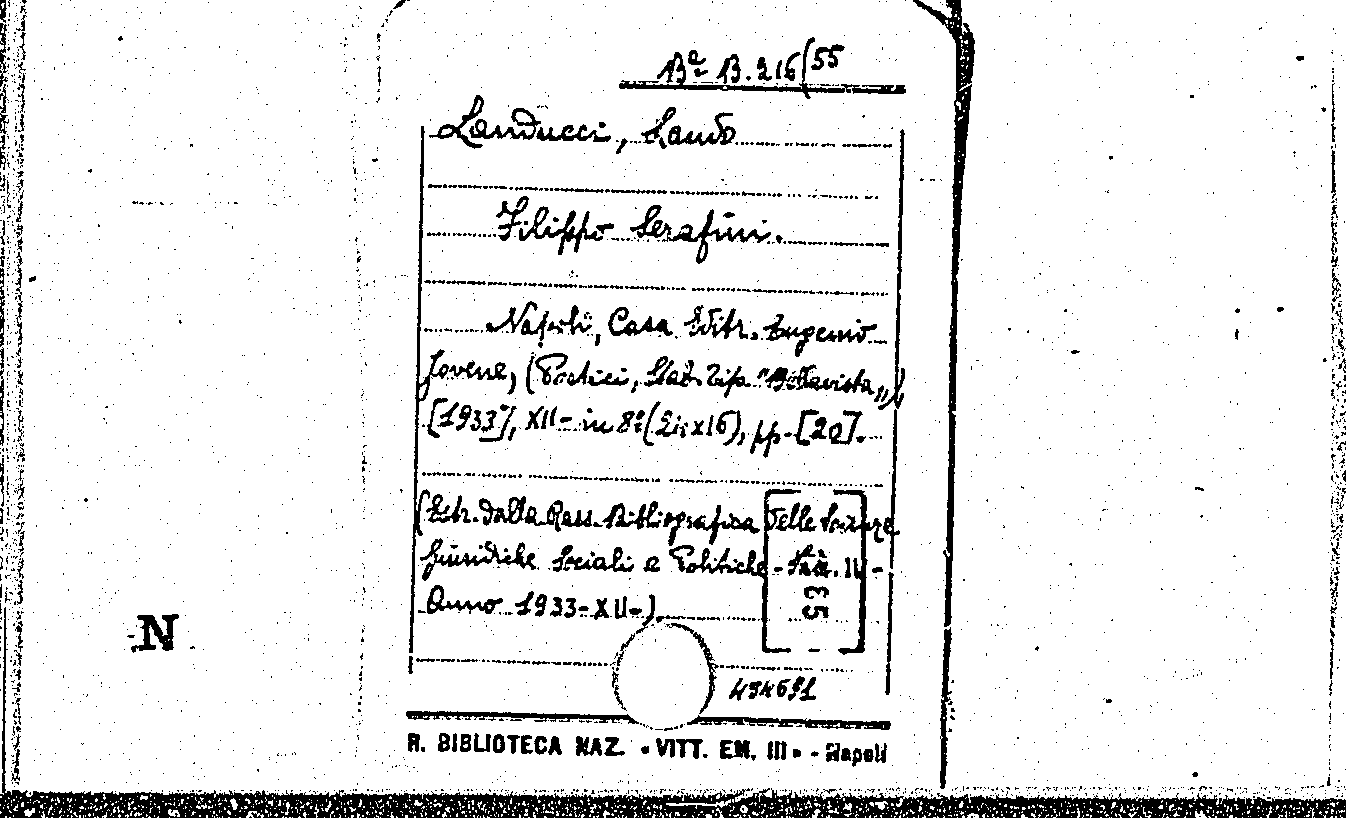 Bª B.216/55
Landucci, Lando
Filippo Serafini.
Napoli, Casa Editr. Eugenio
Jovene, (Portici, Stab. Tip. "Bellavista,,)
[1933], XII- in 8º (21x16), pp. [20].
(Estr. dalla Rass. Bibliografica delle Scienze
Giuridiche Sociali e Politiche - . IV -
Anno 1933-XII-).
53
494691
N
R. BIBLIOTECA NAZ. «VITT. EM. III» - Napoli